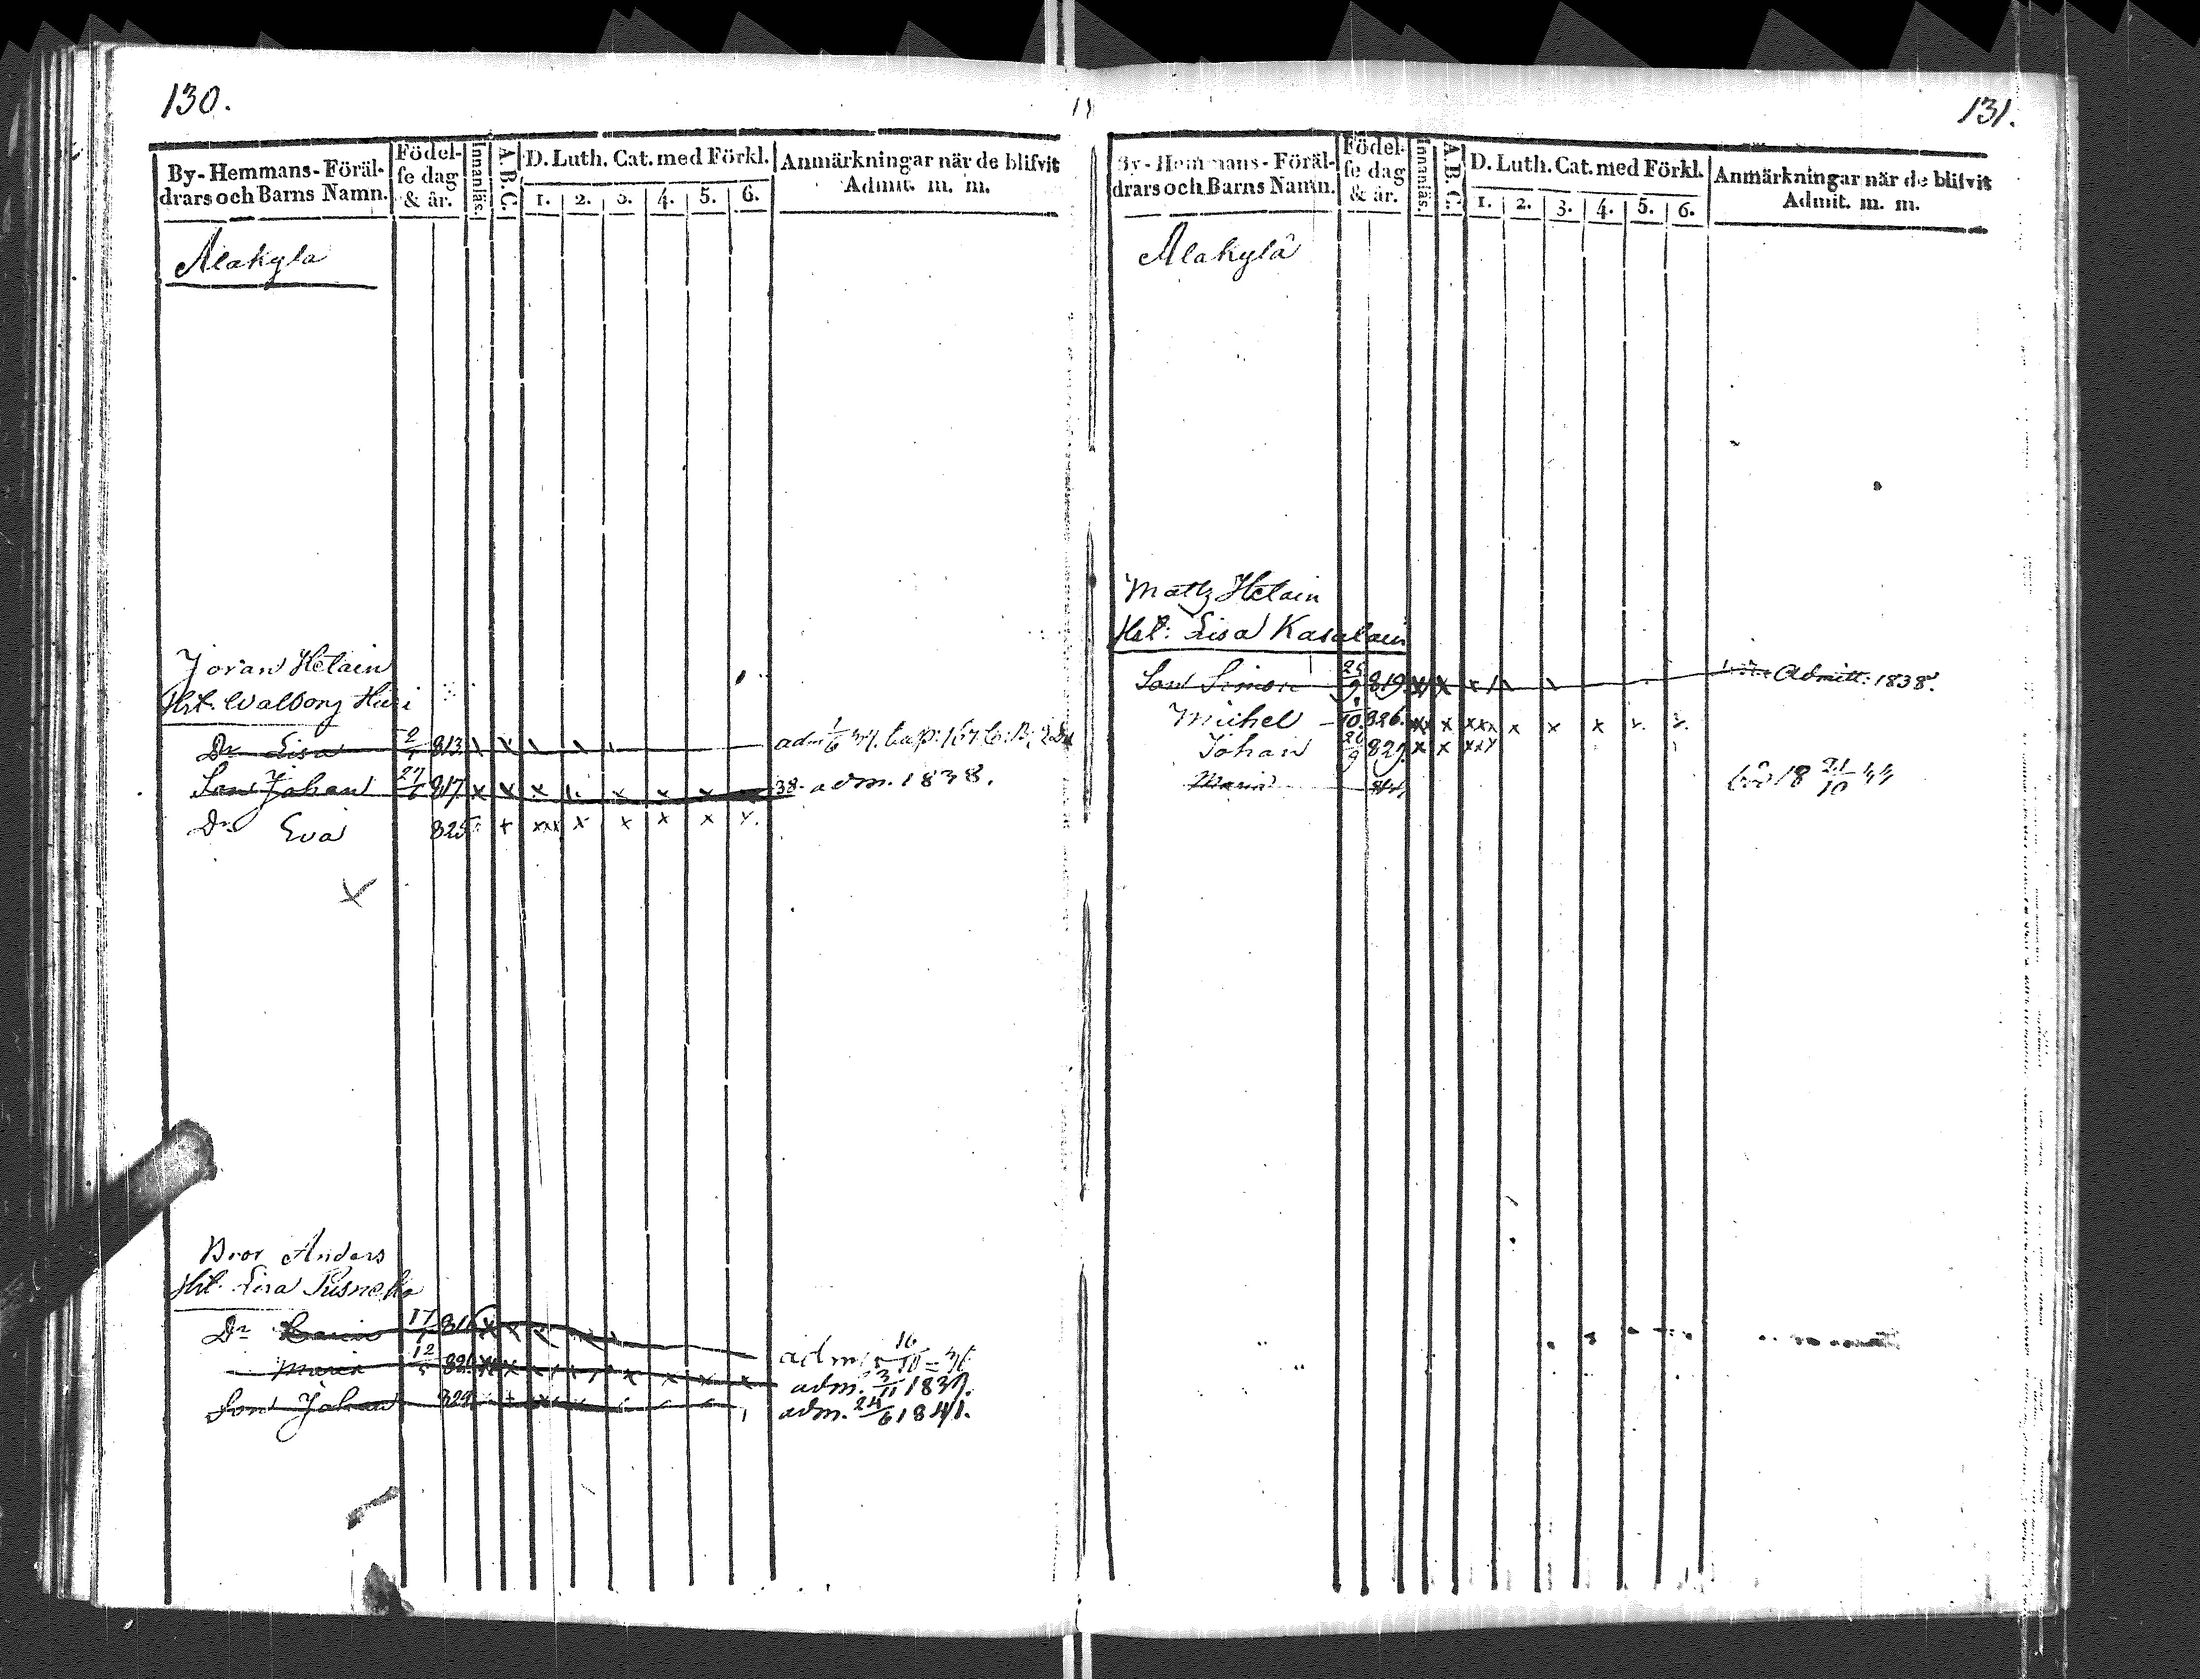 130.
By-Hemmans-Föräl-
drars och Barns Namn.
Födel-
se dag
& år.
Innanläs.
A.B.C.
D. Luth. Cat. med Förkl.
1. 2. 3. 4. 5. 6.
Anmärkningar när de blifvit
Admit. m. m.
Alakyla
Joran Hetain
Hst. Walborg
Dr Lisa 2 813 x x x x
Son Johan 27 817 x x x x x x x 38. adm. 1838.
Dr Eva 825 x xxx x x x x x
x
Bror Anders
Hst. Lisa
Dr 17 x x adm. 16/10
Maria 12 xx x x x x x x adm. 3/11 1837.
Son Johan 829 adm. 24/6 1841.
131.
By-Hemmans-Föräl-
drars och Barns Namn.
Födel-
se dag
& år.
Innanläs.
A.B.C.
D. Luth. Cat. med Förkl.
1. 2. 3. 4. 5. 6.
Anmärkningar när de blifvit
Admit. m. m.
Alakylä
Matts Hetain
Hst: Lisa Kasalain
Son Simon 25/9 819. x x x Admitt: 1838.
Michel 1/10. 826. xx x xxx x x x x x
Johan 20/9 829. x x xxx
Maria 18 21/10 44